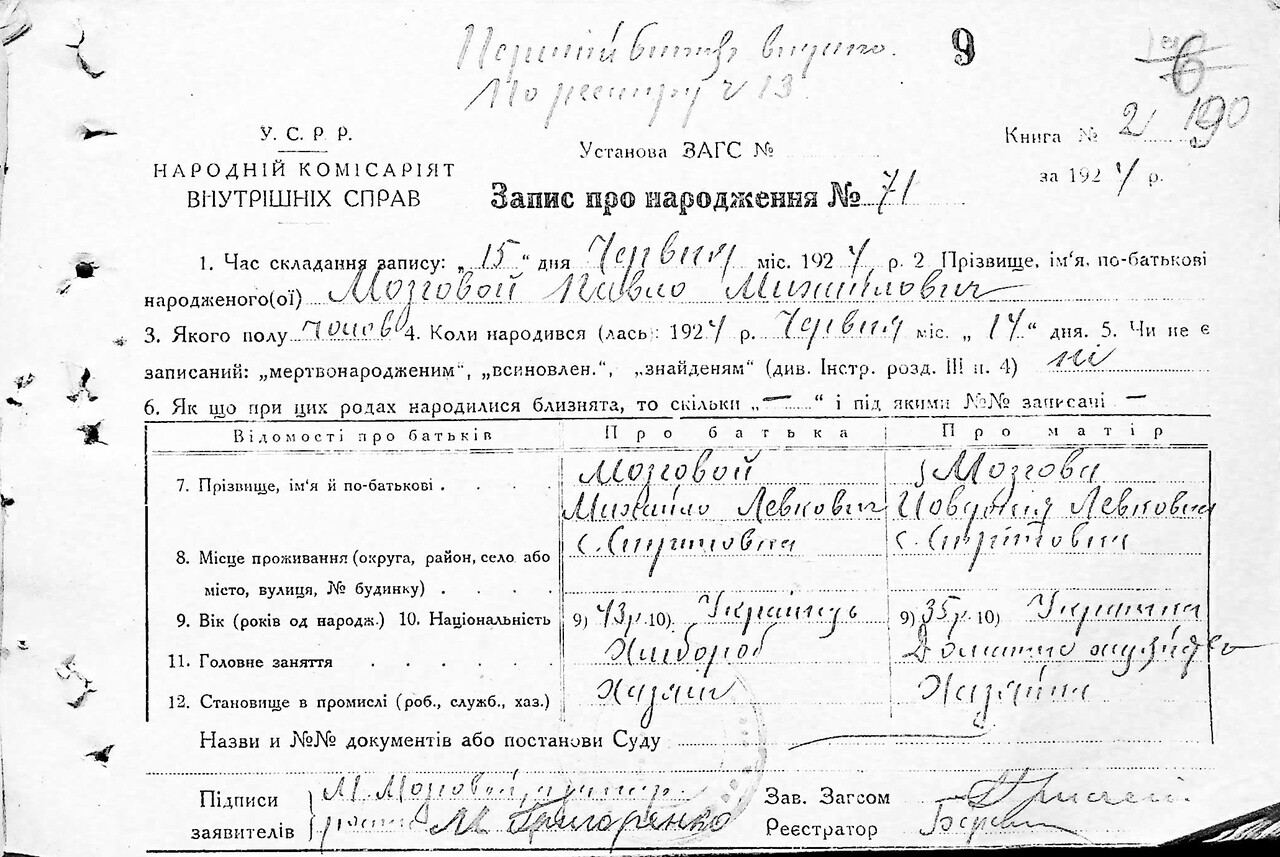 9
6
190
По реєстру ч 13
У. С. Р. Р.
НАРОДНІЙ КОМІСАРІЯТ
ВНУТРІШНІХ СПРАВ
Установа ЗАГС №
Книга № 2
за 1924 р.
Запис про народження № 71
1. Час складання запису: „15“ дня Червня міс. 1924 р. 2 Прізвище, ім'я, по-батькові
народженого(ої) Мозговой Павло Михайлович
3. Якого полу чолов 4. Коли народився (лась): 1924 р. Червня міс. „14“ дня. 5. Чи не є
записаний: „мертвонародженим“, „всиновлен.“, „знайденям“ (див. Інстр. розд. III п. 4) ні
6. Як що при цих родах народилися близнята, то скільки „—“ і під якими №№ записані —
Відомості про батьків Про батька Про матір
7. Прізвище, ім'я й по-батькові . . . . Мозговой Мозгова
Михайло Левкович Левковна
8. Місце проживання (округа, район, село або
місто, вулиця, № будинку) . . . .
9. Вік (років од народж.) 10. Національність 9) 43 р. 10) Українець 9) 35 р. 10) Українка
11. Головне заняття . . . . . . Хлібороб Домашнє
12. Становище в промислі (роб., служб., хаз.) Хазяїн Хазяйка
Назви и №№ документів або постанови Суду
Підписи М. Мозговой,
заявителів М Григоренко
Зав. Загсом
Реєстратор